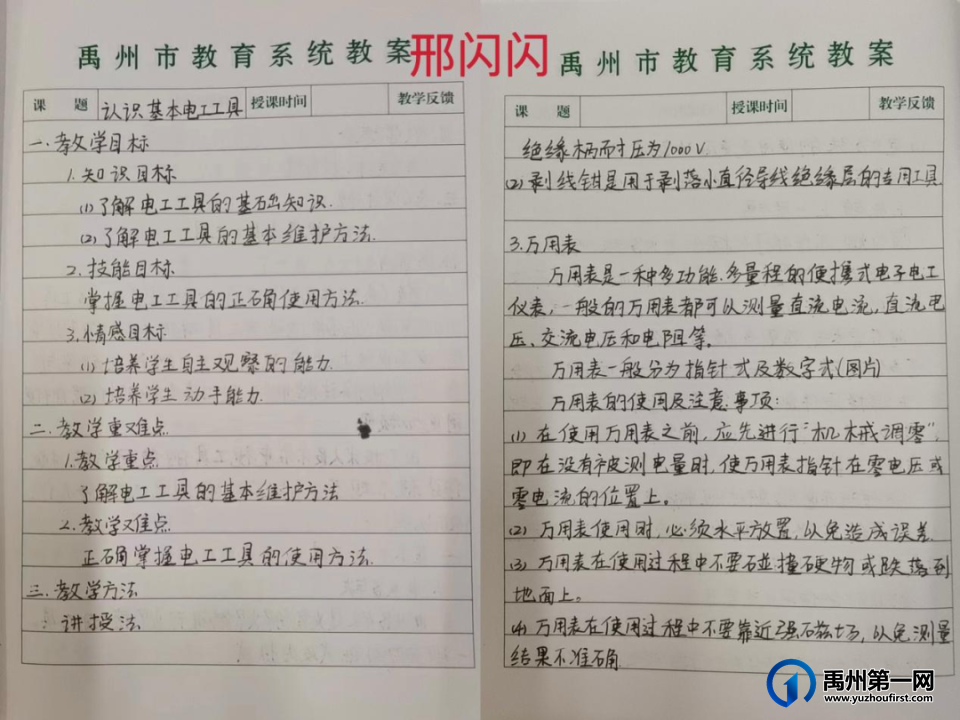 禹州市教育系统教案
课 题 认识基本电工工具 授课时间 教学反馈
一.教学目标
1.知识目标
(1)了解电工工具的基础知识.
(2)了解电工工具的基本维护方法.
2.技能目标
掌握电工工具的正确使用方法.
3.情感目标
(1)培养学生自主观察的能力.
(2)培养学生动手能力.
二.教学重难点
1.教学重点
了解电工工具的基本维护方法
2.教学难点
正确掌握电工工具的使用方法.
三.教学方法
讲授法
邢闪闪
禹州市教育系统教案
课 题 授课时间 教学反馈
绝缘柄耐压为1000V.
(2)剥线钳是用于剥落小直径导线绝缘层的专用工具.
3.万用表
万用表是一种多功能.多量程的便携式电子电工
仪表,一般的万用表都可以测量直流电流,直流电
压、交流电压和电阻等。
万用表一般分为指针式及数字式(图片)
万用表的使用及注意事项:
(1)在使用万用表之前,应先进行“机械调零”,
即在没有被测电量时,使万用表指针在零电压或
零电流的位置上。
(2)万用表使用时,必须水平放置,以免造成误差.
(3)万用表在使用过程中不要碰撞硬物或跌落到
地面上。
(4)万用表在使用过程中不要靠近强磁场,以免测量
结果不准确
禹州第一网
www.yuzhoufirst.com